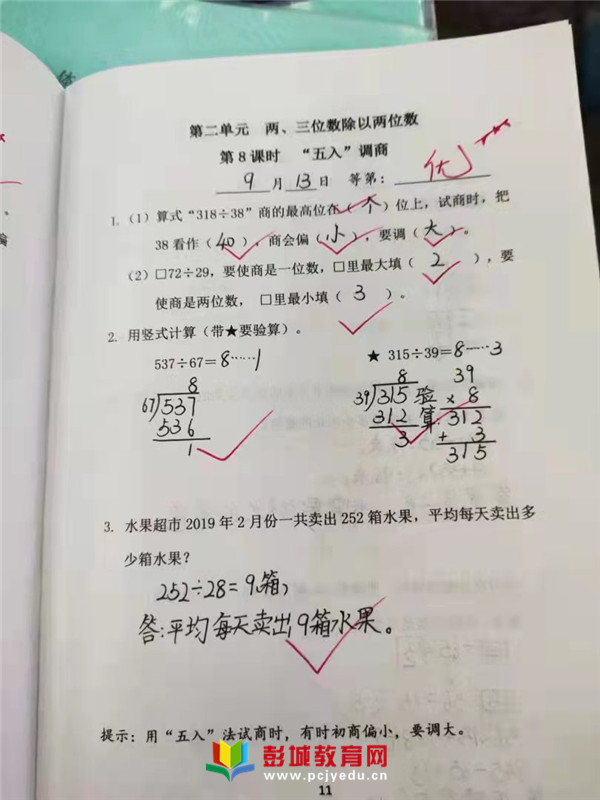 第二单元 两、三位数除以两位数
第8课时 “五入”调商
9月13日 等第：优
1.（1）算式“318÷38”商的最高位在（个）位上，试商时，把
38看作（40），商会偏（小），要调（大）。
（2）□72÷29，要使商是一位数，□里最大填（2），要
使商是两位数，□里最小填（3）。
2. 用竖式计算（带★要验算）。
537÷67=8……1 ★ 315÷39=8……3
8
67)537
536
1
8
39)315
312
3
验算:
39
×8
312
+3
315
3. 水果超市2019年2月份一共卖出252箱水果，平均每天卖出多
少箱水果？
252÷28=9(箱)
答:平均每天卖出9箱水果。
提示：用“五入”法试商时，有时初商偏小，要调大。
彭城教育网
www.pcjyedu.cn
11